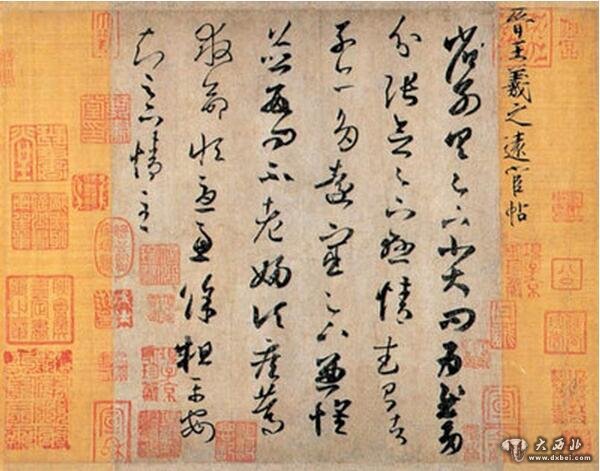 晉王羲之遠宦帖
省別具足下小大問為慰多
分張念足下懸情武昌諸
子亦多遠宦足下兼懷
並數問不老婦頃疾篤
救命恒憂慮餘粗平安
知足下情至
大西北
www.dxbei.com